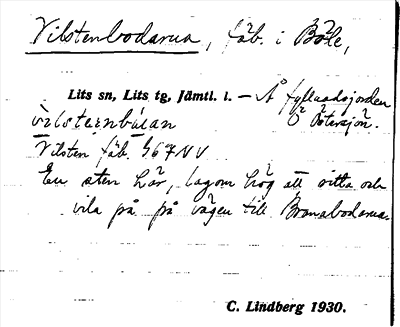 Vilstenbodarna, fäb. i Böle,
Lits sn, Lits tg, Jämtl. l. – Å fyllnadsjorden
Ö Östersjön.
vilsteinbúan
Vilsten fäb. 567NV
En sten här, lagom hög att sitta och
vila på på vägen till Branabodarna
C. Lindberg 1930.